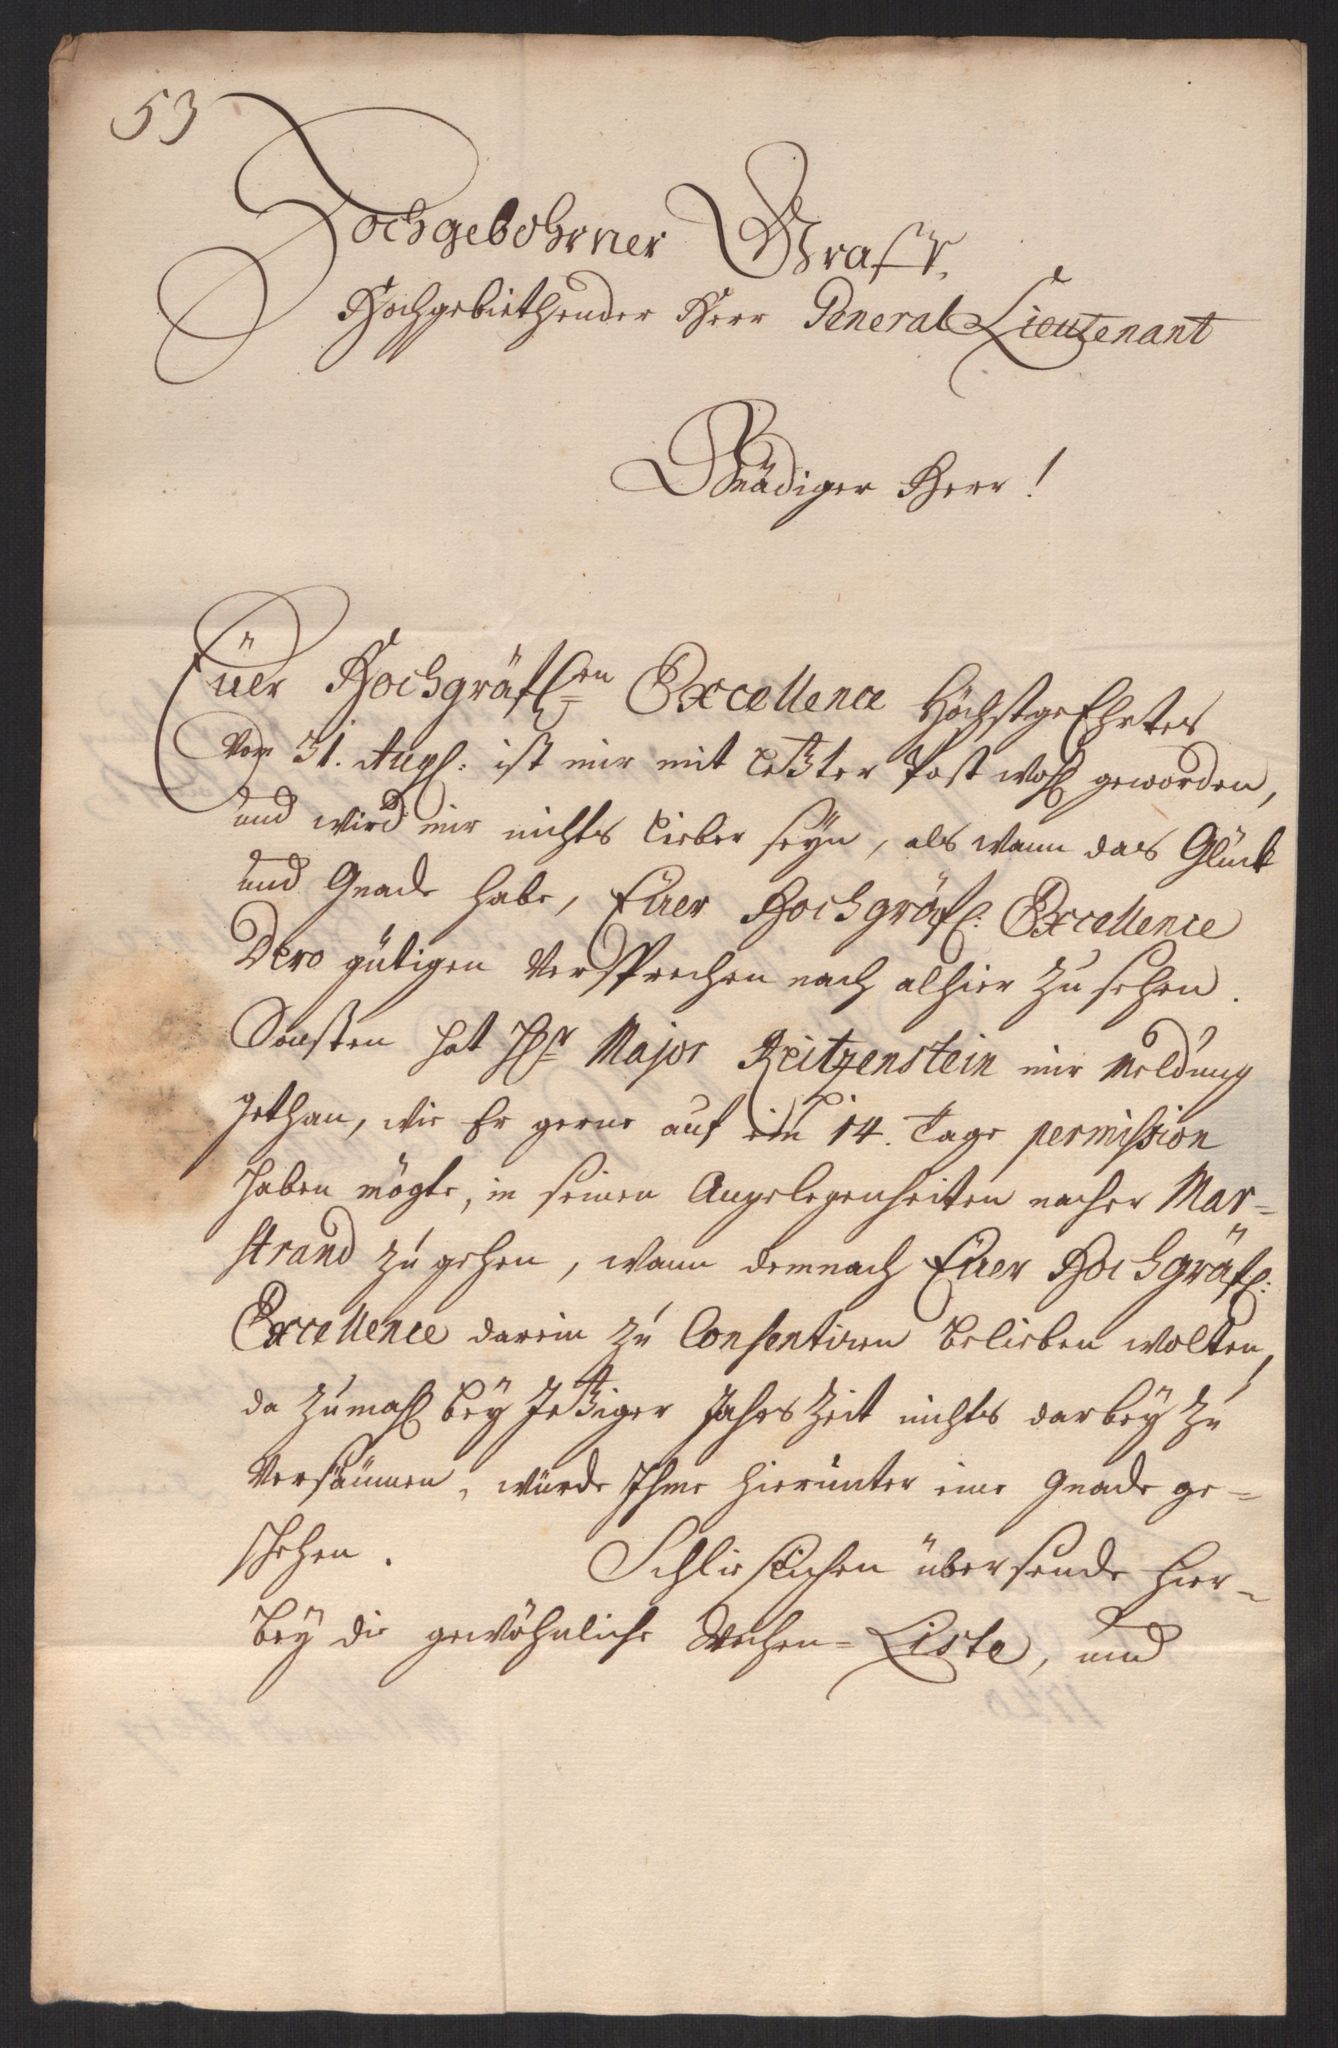 53
Hochgebohrner Graff,
Hochgebiethender Herr General Lieutenant
Gnädiger Herr!
Eüer Hochgräfl:en Excellence HöchstgeEhrtes
vom 31. Aug: ist mir mit letzter Post wohl geworden,
und wird mir nichts lieber seyn, als wann das Glück
und Gnade habe, Eüer Hochgräfl: Excellence
Dero gütigen Versprechen nach alhier zu sehen.
Sonsten hat Hr Major Reitzenstein mir Meldung
gethan, wie Er gerne auf ein 14. Tage permission
haben mögte, in seinen Angelegenheiten nacher Mar=
strand zu gehen, wann demnach Eüer Hochgräfl:
Excellence darein zu Consentiren belieben wolten,
da zumahl bey Jetziger JahrsZeit nichts darbey zu
versäumen, würde Ihme hierunter eine Gnade ge=
schehen. Schlieslichen übersende hier=
bey die gewöhnliche Wochen=Liste, und